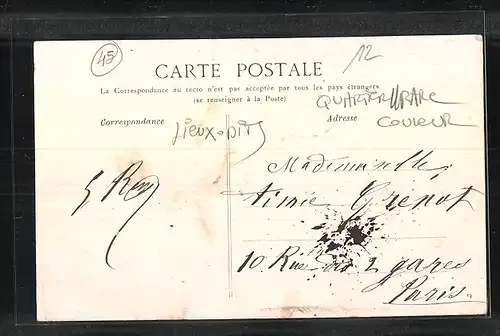 45
12
CARTE POSTALE
La Correspondance au recto n'est pas acceptée par tous les pays étrangers
(se renseigner à la Poste)
QUARTIER//RARE
COULEUR
Correspondance
Adresse
Lieux-Dits
Mademoiselle
Aimée Grenot
10 Rue des 2 gares
Paris